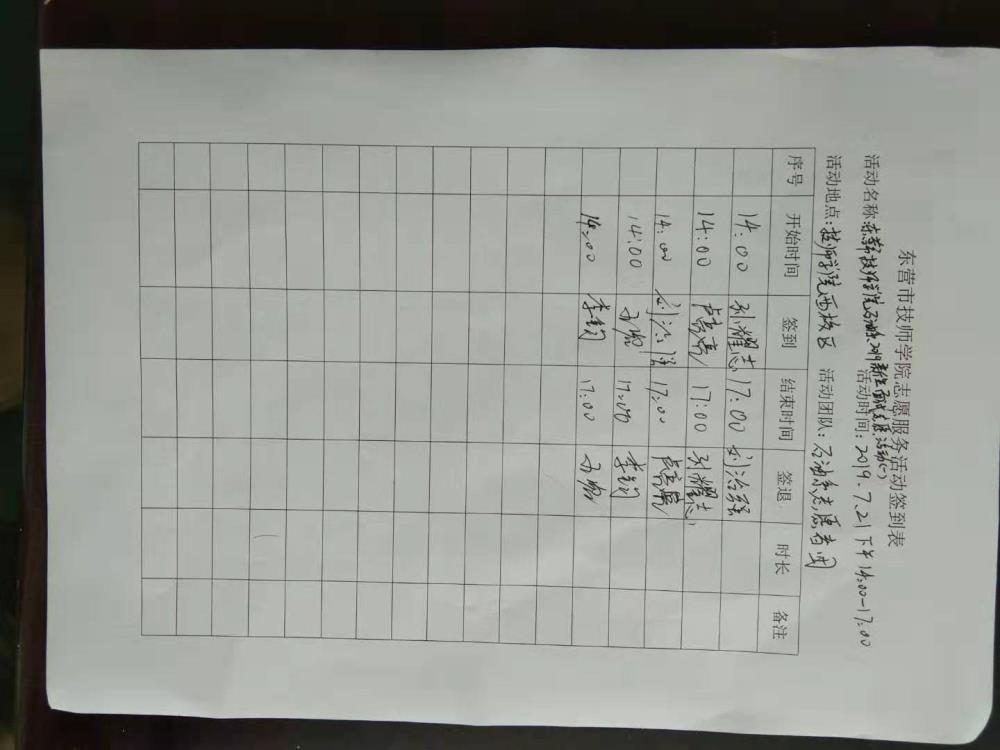 东营市技师学院志愿服务活动签到表
活动名称:东营技师学院石油系2019新生面试志愿活动(一) 活动时间:2019.7.21下午14:00-17:00
活动地点:技师学院西校区 活动团队:石油系志愿者团
序号 开始时间 签到 结束时间 签退 时长 备注
14:00 刘耀志 17:00 刘治强
14:00 卢亮亮 17:00 刘耀志
14:00 刘治强 17:00 卢亮亮
14:00 17:00 李钧
14:00 李钧 17:00